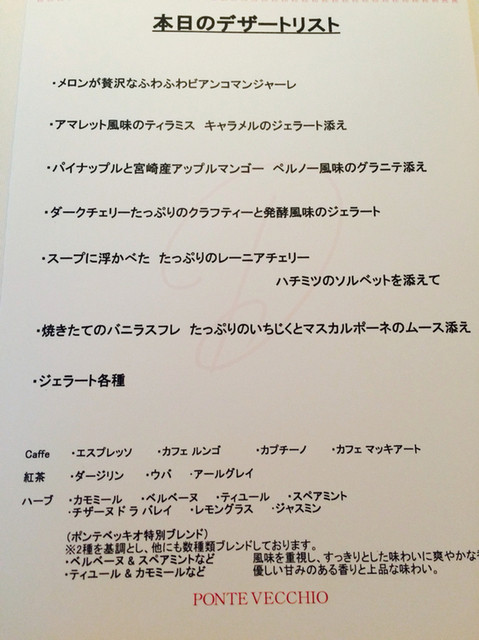 本日のデザートリスト
・メロンが贅沢なふわふわビアンコマンジャーレ
・アマレット風味のティラミス キャラメルのジェラート添え
・パイナップルと宮崎産アップルマンゴー ペルノー風味のグラニテ添え
・ダークチェリーたっぷりのクラフティーと発酵風味のジェラート
・スープに浮かべた たっぷりのレーニアチェリー
ハチミツのソルベットを添えて
・焼きたてのバニラスフレ たっぷりのいちじくとマスカルポーネのムース添え
・ジェラート各種
Caffe ・エスプレッソ ・カフェ ルンゴ ・カプチーノ ・カフェ マッキアート
紅茶 ・ダージリン ・ウバ ・アールグレイ
ハーブ ・カモミール ・ベルベーヌ ・ティユール ・スペアミント
・チザーヌ ド ラ バレイ ・レモングラス ・ジャスミン
(ポンテベッキオ特別ブレンド)
※2種を基調とし、他にも数種類ブレンドしております。
・ベルベーヌ & スペアミントなど 風味を重視し、すっきりとした味わいに爽やかな
・ティユール & カモミールなど 優しい甘みのある香りと上品な味わい。
PONTE VECCHIO